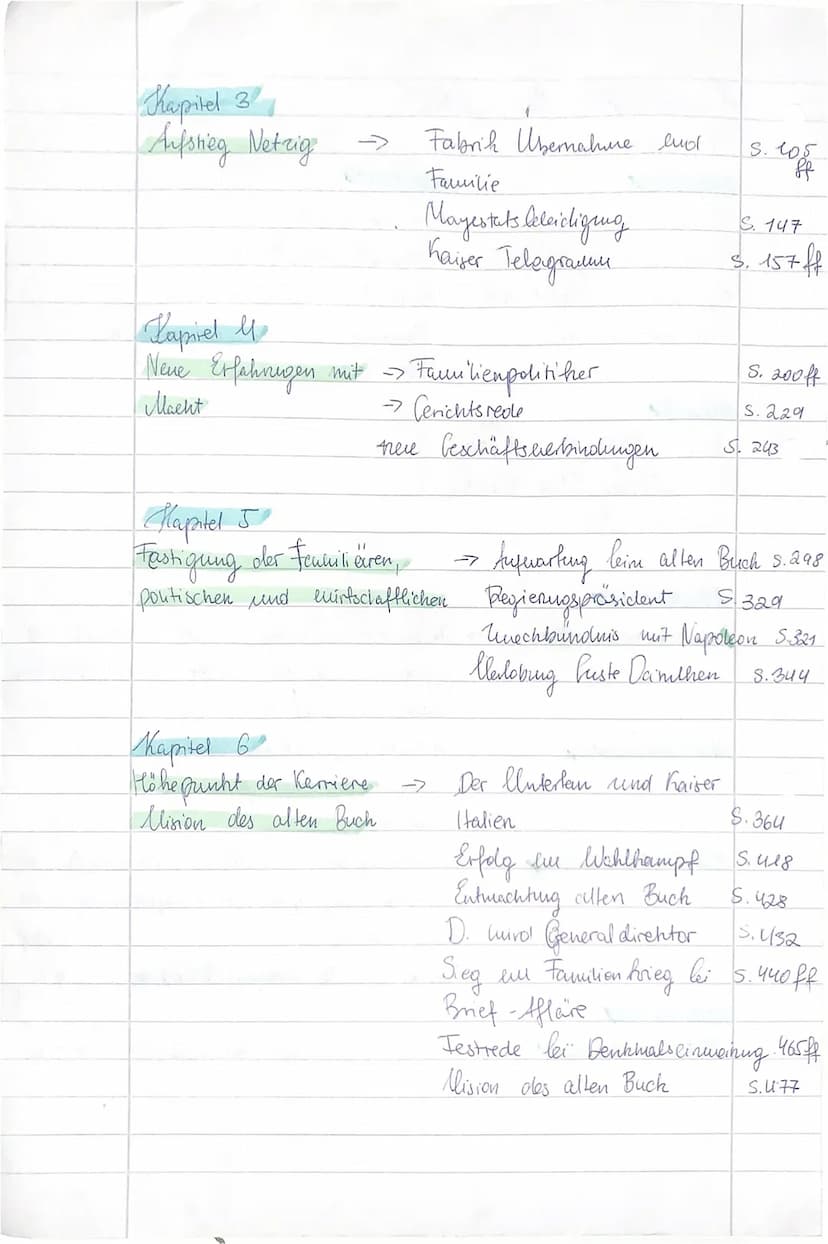 Kapitel 3
Aufstieg Netzig -> Fabrik Übernahme und S. 105 ff
Familie
Mayestatsbeleidigung S. 147
Kaiser Telegramm S. 157 ff
Kapitel 4
Neue Erfahrungen mit -> Familienpolitiker S. 200 ff
Macht -> Gerichtsrede S. 229
neue Geschäftsverbindungen S. 243
Kapitel 5
Festigung der familiären, -> Aufwartung beim alten Buch S. 298
politischen und wirtschaftlichen Regierungspräsident S. 329
mit Napoleon S. 321
Verlobung Guste Daimchen S. 344
Kapitel 6
Höhepunkt der Karriere -> Der Untertan und Kaiser
Vision des alten Buch Italien S. 364
Erfolg im Wahlkampf S. 418
Entmachtung alten Buch S. 428
D. wird Generaldirektor S. 432
Sieg im Familienkrieg bei S. 440 ff
Brief-Affäre
Festrede bei Denkmalseinweihung 465 ff
Vision des alten Buch S. 477